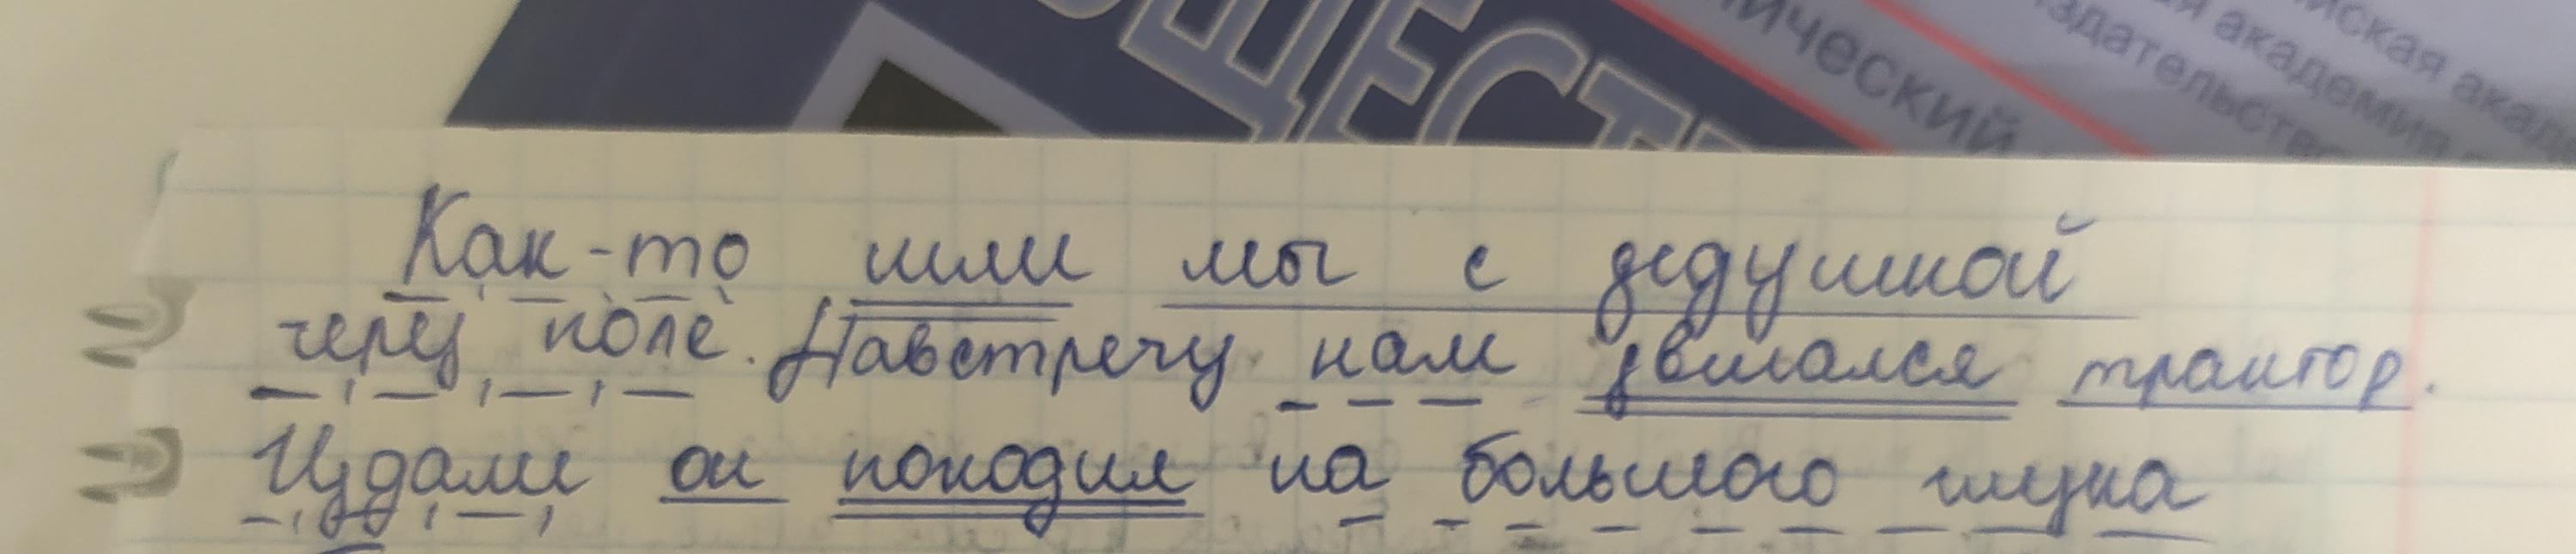 ЩЕСТ
ический
ская акад
ая академия
здательство
Как-то шли мы с дедушкой
через поле. Навстречу нам двигался трактор.
Издали он походил на большого жука